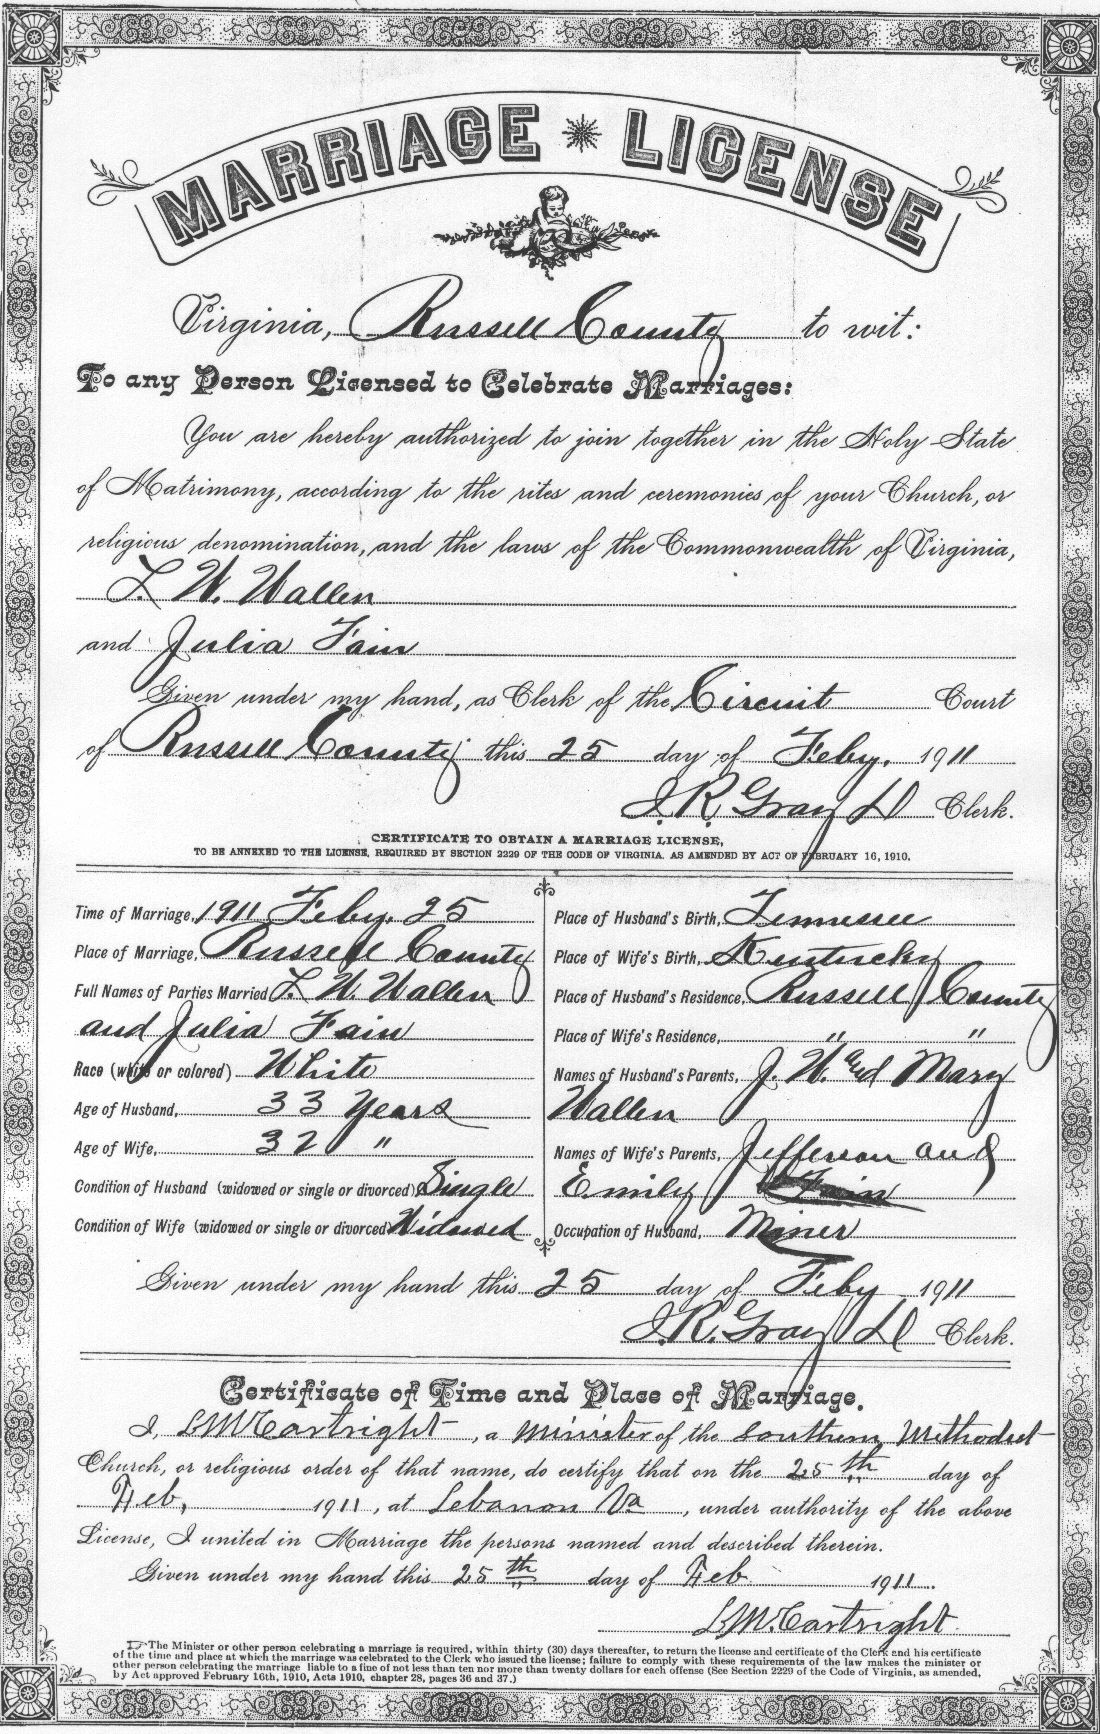 MARRIAGE LICENSE
Virginia, Russell County to wit:
To any Person Licensed to Celebrate Marriages:
You are hereby authorized to join together in the Holy State
of Matrimony, according to the rites and ceremonies of your Church, or
religious denomination, and the laws of the Commonwealth of Virginia,
L. W. Wallen
and Julia Fain
Given under my hand, as Clerk of the Circuit Court
of Russell County this 25 day of Feby. 1911
J. R. Gray Clerk.
CERTIFICATE TO OBTAIN A MARRIAGE LICENSE,
TO BE ANNEXED TO THE LICENSE, REQUIRED BY SECTION 2229 OF THE CODE OF VIRGINIA. AS AMENDED BY ACT OF FEBRUARY 16, 1910.
Time of Marriage, 1911 Feby. 25
Place of Marriage, Russell County
Full Names of Parties Married L. W. Wallen
and Julia Fain
Race (white or colored) White
Age of Husband, 33 Years
Age of Wife, 32 "
Condition of Husband (widowed or single or divorced) Single
Condition of Wife (widowed or single or divorced) Widowed
Place of Husband's Birth, Tennessee
Place of Wife's Birth, Kentucky
Place of Husband's Residence, Russell County
Place of Wife's Residence, " "
Names of Husband's Parents, J. W. and Mary
Wallen
Names of Wife's Parents, Jefferson and
Emily Fain
Occupation of Husband, Miner
Given under my hand this 25 day of Feby 1911
J. R. Gray Clerk.
Certificate of Time and Place of Marriage.
I, L M Cartright, a Minister of the Southern Methodist
Church, or religious order of that name, do certify that on the 25th day of
Feb, 1911, at Lebanon Va, under authority of the above
License, I united in Marriage the persons named and described therein.
Given under my hand this 25th day of Feb 1911.
L. M. Cartright
The Minister or other person celebrating a marriage is required, within thirty (30) days thereafter, to return the license and certificate of the Clerk and his certificate
of the time and place at which the marriage was celebrated to the Clerk who issued the license; failure to comply with these requirements of the law makes the minister or
other person celebrating the marriage liable to a fine of not less than ten nor more than twenty dollars for each offense (See Section 2229 of the Code of Virginia, as amended,
by Act approved February 16th, 1910, Acts 1910, chapter 28, pages 36 and 37.)